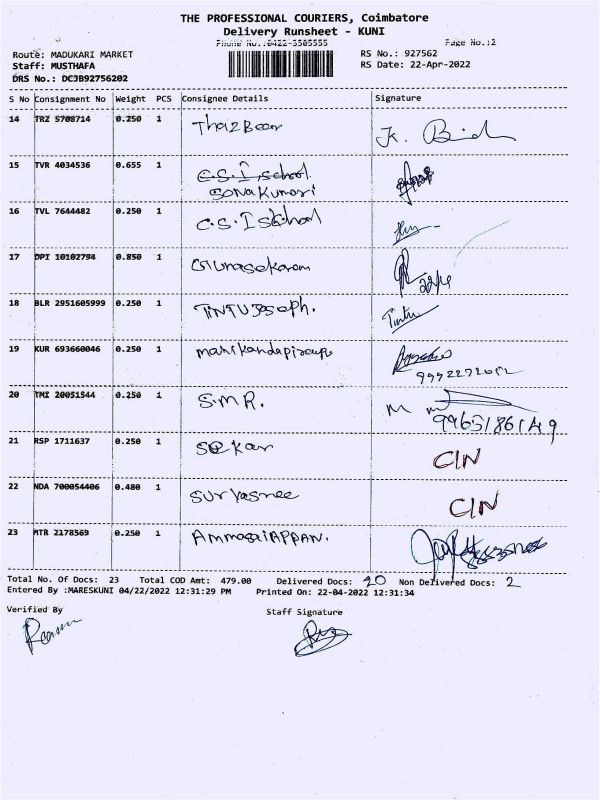 THE PROFESSIONAL COURIERS, Coimbatore
Delivery Runsheet - KUNI
Phone No.:0422-3505555 Page No.:2
Route: MADUKARI MARKET RS No.: 927562
Staff: MUSTHAFA RS Date: 22-Apr-2022
DRS No.: DCJB92756202
S No Consignment No Weight PCS Consignee Details Signature
14 TRZ 5708714 0.250 1 K.
15 TVR 4034536 0.655 1 C.S.I school
Sona Kumari
16 TVL 7644482 0.250 1 C.S.I School
17 DPI 10102794 0.850 1 Gunasekaran 22/4
18 BLR 2951605999 0.250 1 TINTU Joseph. Tintu
19 KUR 693660046 0.250 1
20 TMI 20051544 0.250 1 S.M.R. M
21 RSP 1711637 0.250 1 Sekar C/N
22 NDA 700054406 0.480 1 Suryasree C/N
23 MTR 2178569 0.250 1 AmmasaiAPPAN.
Total No. Of Docs: 23 Total COD Amt: 479.00 Delivered Docs: 20 Non Delivered Docs: 2
Entered By :MARESKUNI 04/22/2022 12:31:29 PM Printed On: 22-04-2022 12:31:34
Verified By Staff Signature